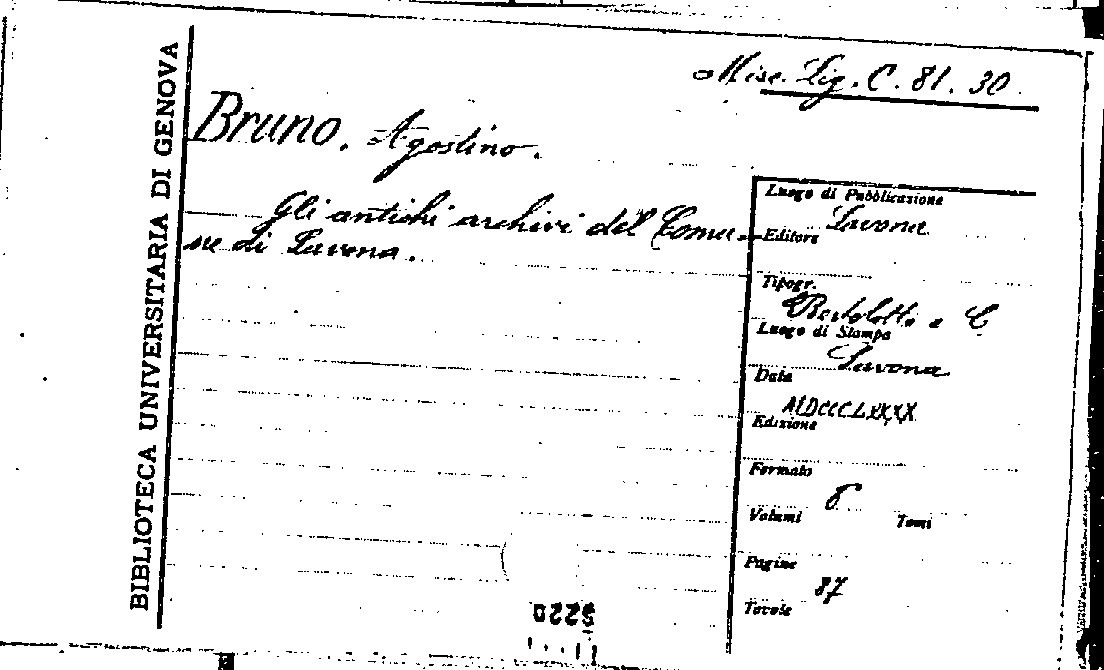 BIBLIOTECA UNIVERSITARIA DI GENOVA
Misc. Lig. C. 81. 30
Bruno. Agostino.
Gli antichi archivi del Comu-
ne di Savona.
Luogo di Pubblicazione
Savona
Editore
Tipogr.
Bertolotto e C
Luogo di Stampa
Savona
Data
MDCCCLXXXX
Edizione
Formato
8
Volumi Tomi
Pagine
87
Tavole